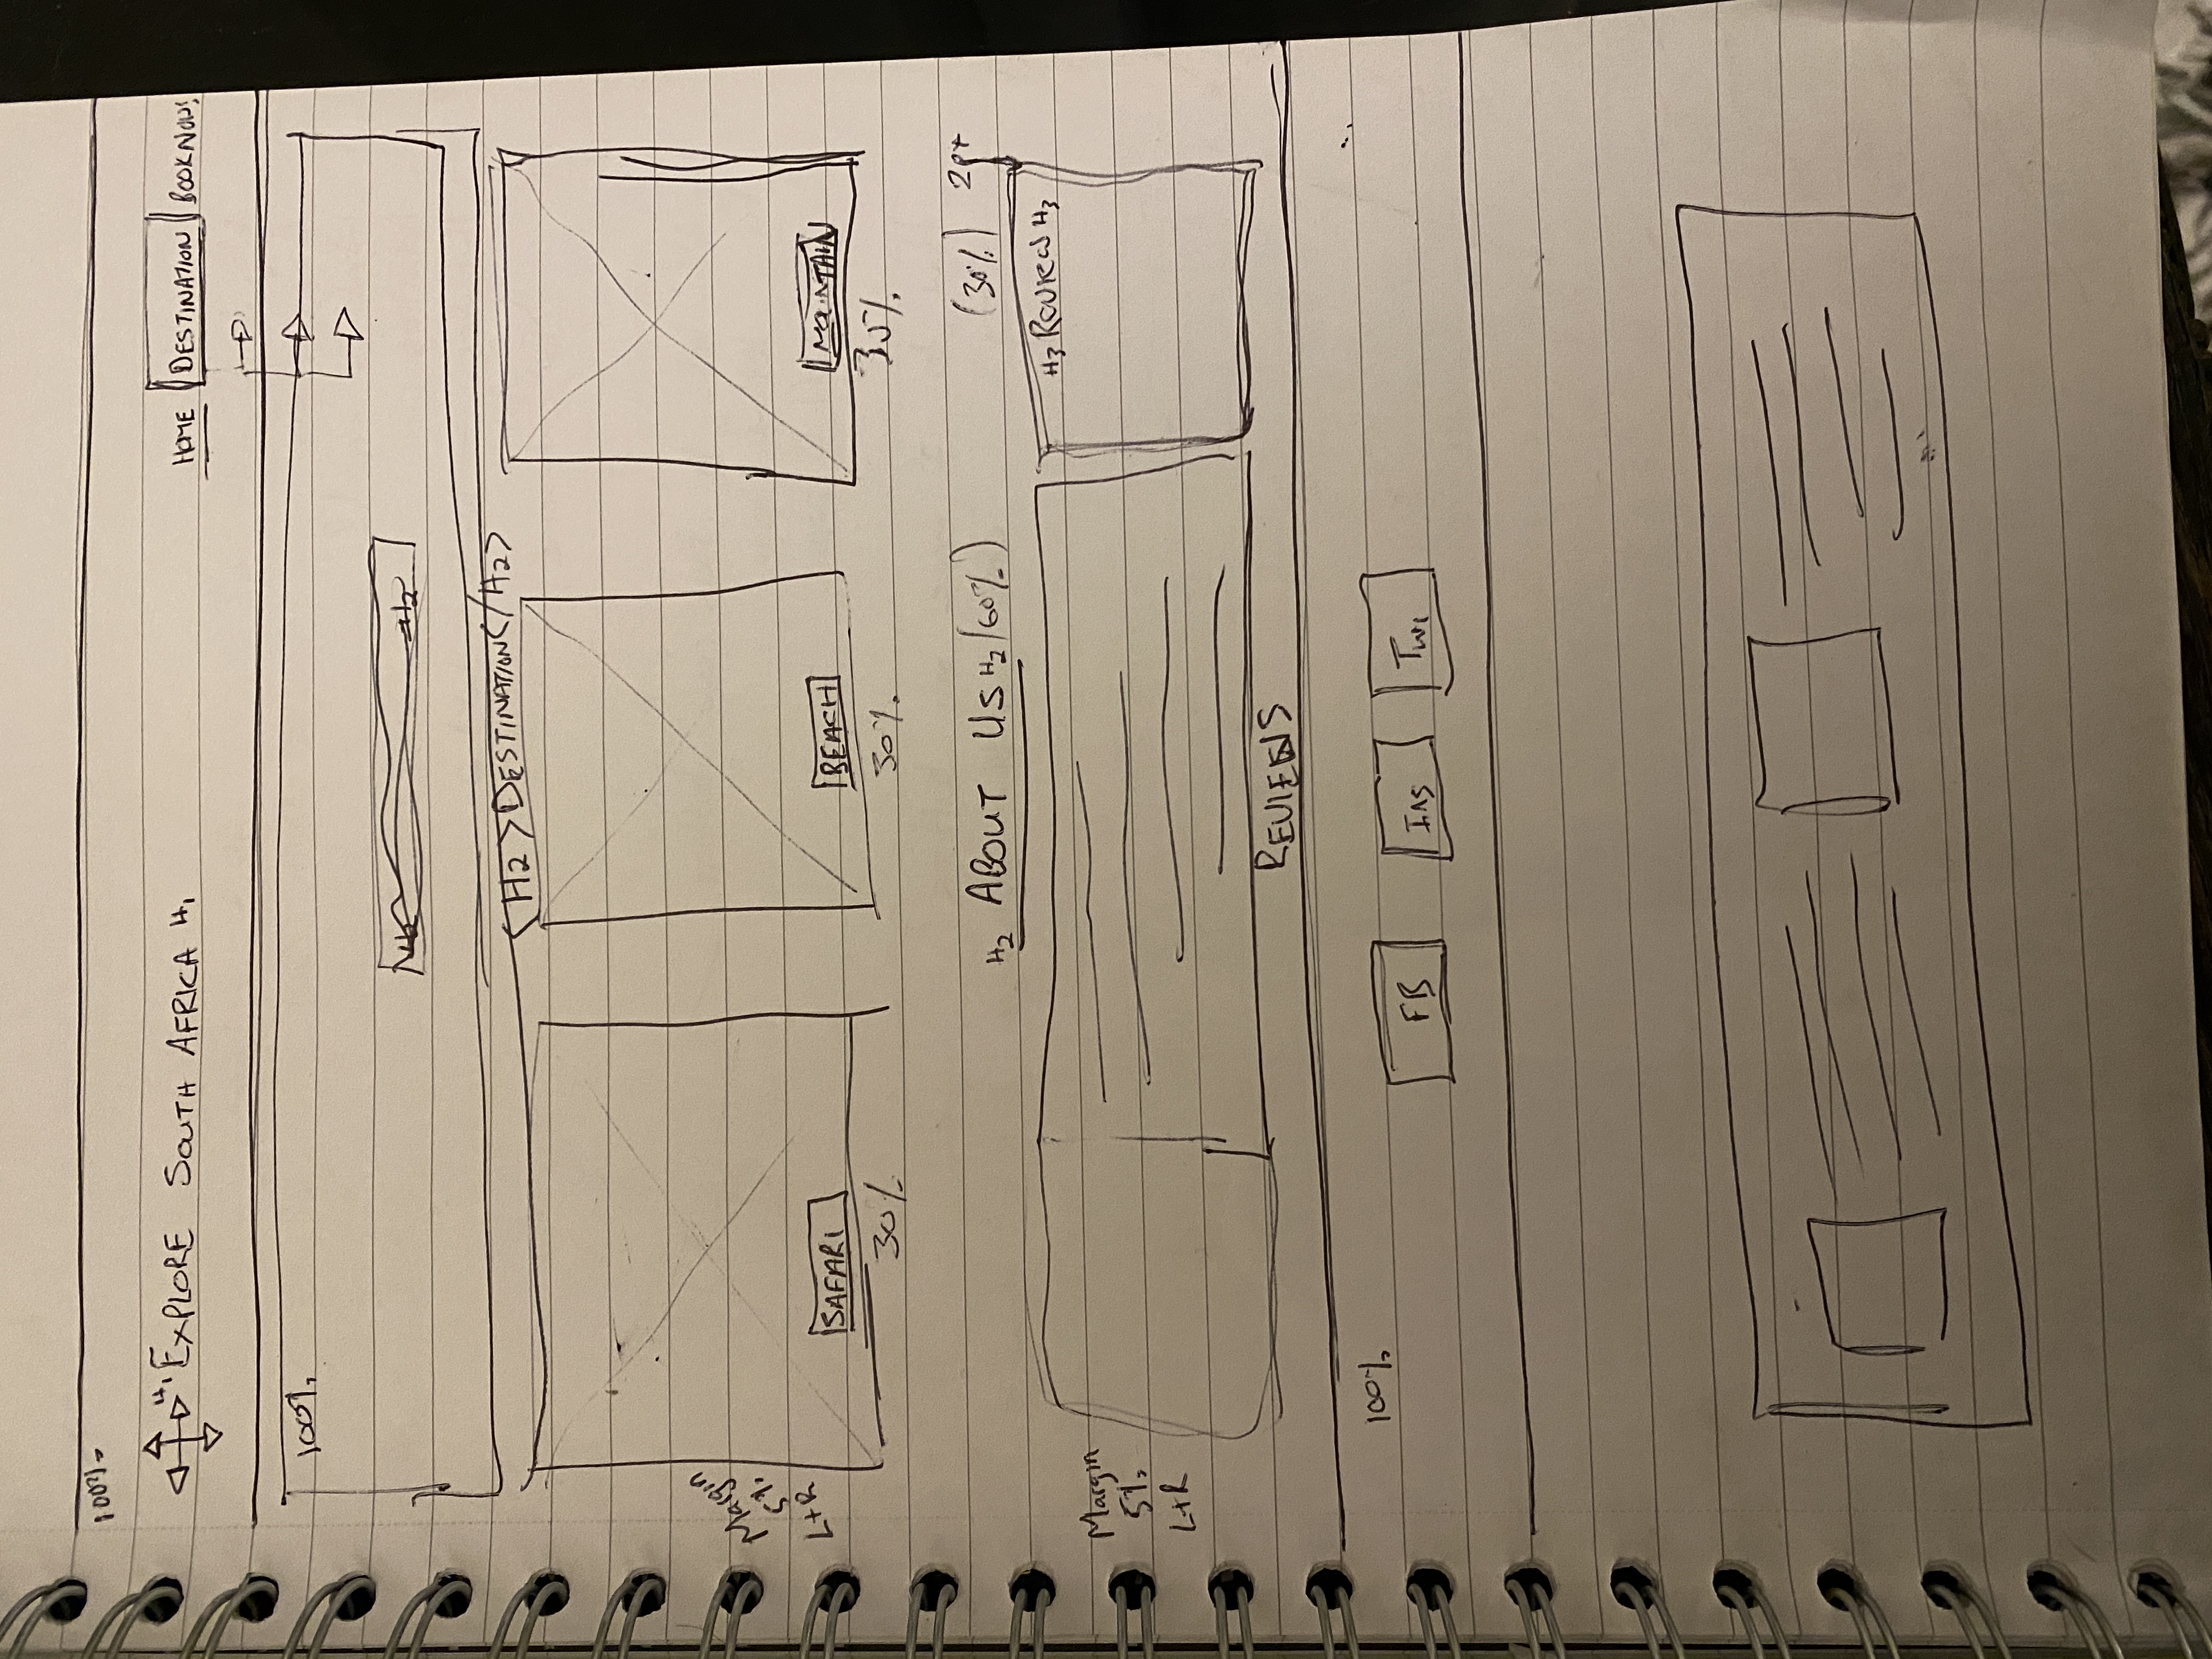 100%
H1 EXPLORE SOUTH AFRICA H1
HOME DESTINATION BOOK NOW!
100%
H2 H2
<H2> DESTINATION </H2>
Margin
5%
L+R
SAFARI
BEACH
MOUNTAIN
30%
30%
35%
H2 ABOUT US H2 (60%)
(30%)
2pt
H3 REVIEW H3
Margin
5%
L+R
REVIEWS
100%
FB
INS
Twi